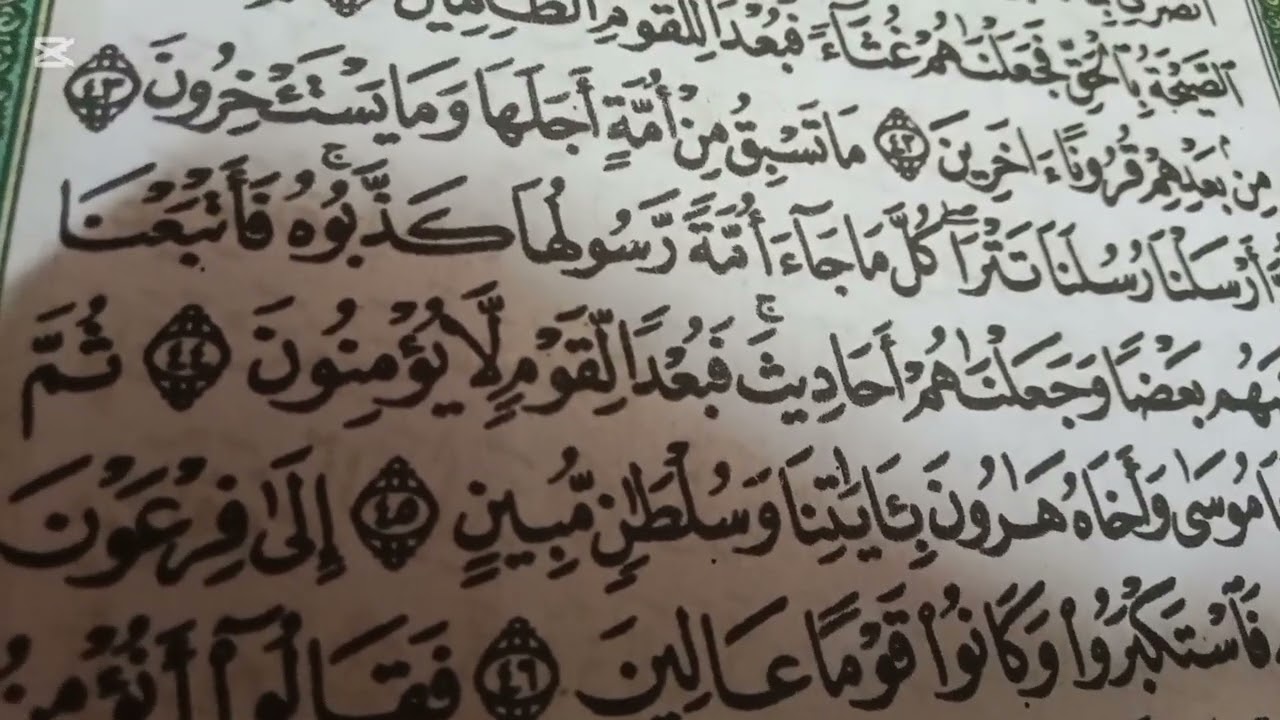 ٱلصَّيْحَةُ بِٱلْحَقِّ فَجَعَلْنَٰهُمْ غُثَآءً فَبُعْدًا لِّلْقَوْمِ ٱلظَّٰلِمِينَ
مِنۢ بَعْدِهِمْ قُرُونًا ءَاخَرِينَ ٤٢ مَا تَسْبِقُ مِنْ أُمَّةٍ أَجَلَهَا وَمَا يَسْتَـْٔخِرُونَ ٤٣
أَرْسَلْنَا رُسُلَنَا تَتْرَا كُلَّ مَا جَآءَ أُمَّةً رَّسُولُهَا كَذَّبُوهُ ۚ فَأَتْبَعْنَا
بَعْضًا وَجَعَلْنَٰهُمْ أَحَادِيثَ ۚ فَبُعْدًا لِّقَوْمٍ لَّا يُؤْمِنُونَ ٤٤ ثُمَّ
مُوسَىٰ وَأَخَاهُ هَٰرُونَ بِـَٔايَٰتِنَا وَسُلْطَٰنٍ مُّبِينٍ ٤٥ إِلَىٰ فِرْعَوْنَ
فَٱسْتَكْبَرُوا۟ وَكَانُوا۟ قَوْمًا عَالِينَ ٤٦ فَقَالُوٓا۟ أَنُؤْمِنُ